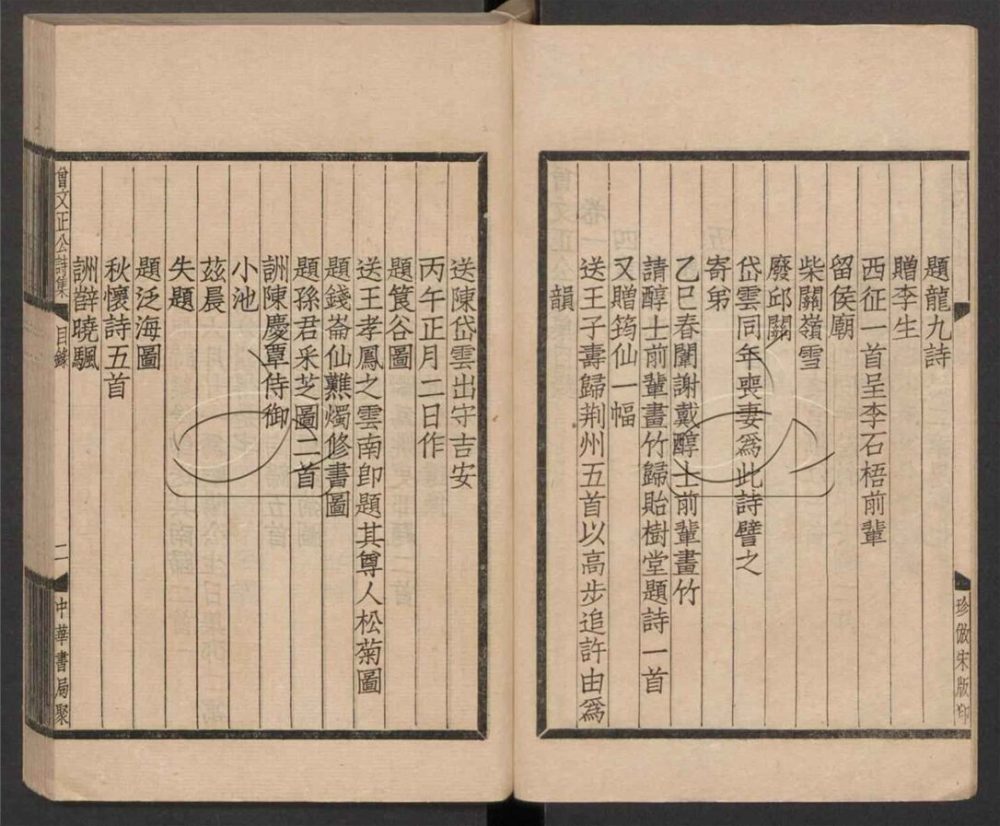 題龍九詩
贈李生
西征一首呈李石梧前輩
留侯廟
柴關嶺雪
廢邱關
岱雲同年喪妻爲此詩譬之
寄弟
乙巳春闈謝戴醇士前輩畫竹
請醇士前輩畫竹歸貽樹堂題詩一首
又贈筠仙一幅
送王子壽歸荆州五首以高步追許由爲
韻
珍倣宋版印
送陳岱雲出守吉安
丙午正月二日作
題篔谷圖
送王孝鳳之雲南卽題其尊人松菊圖
題錢崙仙爇燭修書圖
題孫君采芝圖二首
詶陳慶覃侍御
小池
茲晨
失題
題泛海圖
秋懷詩五首
詶辥曉颿
曾文正公詩集
目錄
二
中華書局聚